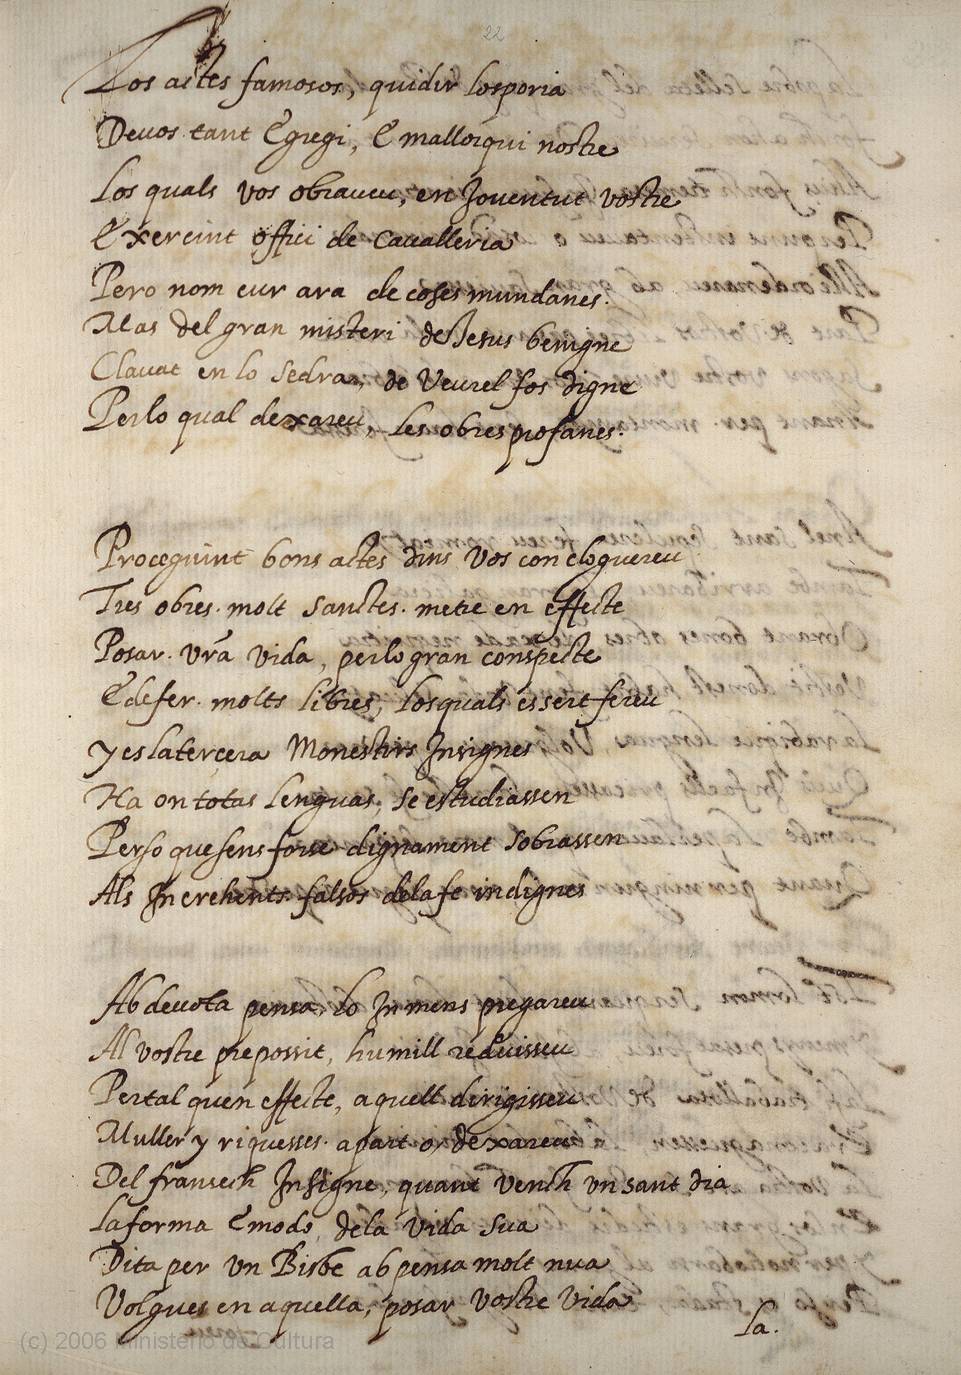 22
Los actes famosos, quidir losporia
Devos tant Egregi, E mallorqui nostre
Los quals vos obraveu, en Joventut vostre
Exercint offici de Cavalleria
Pero nom cur ara de coses mundanes.
Mas del gran misteri de Jesus benigne
Clavat en lo Sedra, de Veurel fos digne
Perlo qual dexareu, les obres profanes.
Proceguint bons actes dins Vos concloguereu
Tres obres molt Sanctes. metre en effecte
Posar. vra vida, perlo gran conspecte
E defer. molts libres, losquals essent fereu
y es latercera Monestirs Insignes
Ha on totas Lenguas, se estudiassen
Perso que sens forse dignament Sobrassen
Als Increhents falsos dela fe indignes
Ab devota pensa lo Inmens pregareu
Al vostre prepossit, humill reduisseu
Pertal quen effecte, aquell dirigisseu
Muller y riquesses. apart o, dexareu
Del fransech Insigne, quant vench un sant dia
Laforma E modo, dela vida sua
Dita per un Bisbe ab pensa molt nua
Volgues en aquella, posar vostre vida
la.
(c) 2006 Ministerio de Cultura